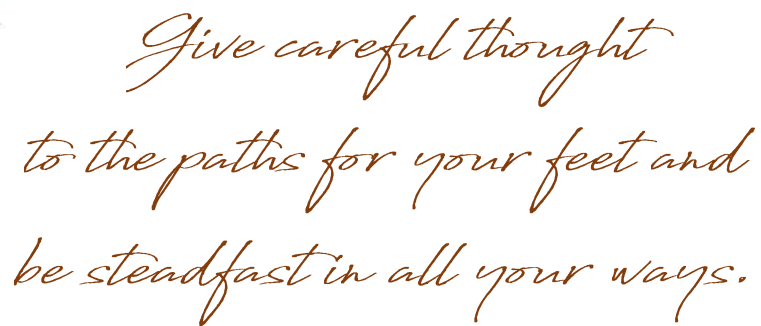 Give careful thought
to the paths for your feet and
be steadfast in all your ways.